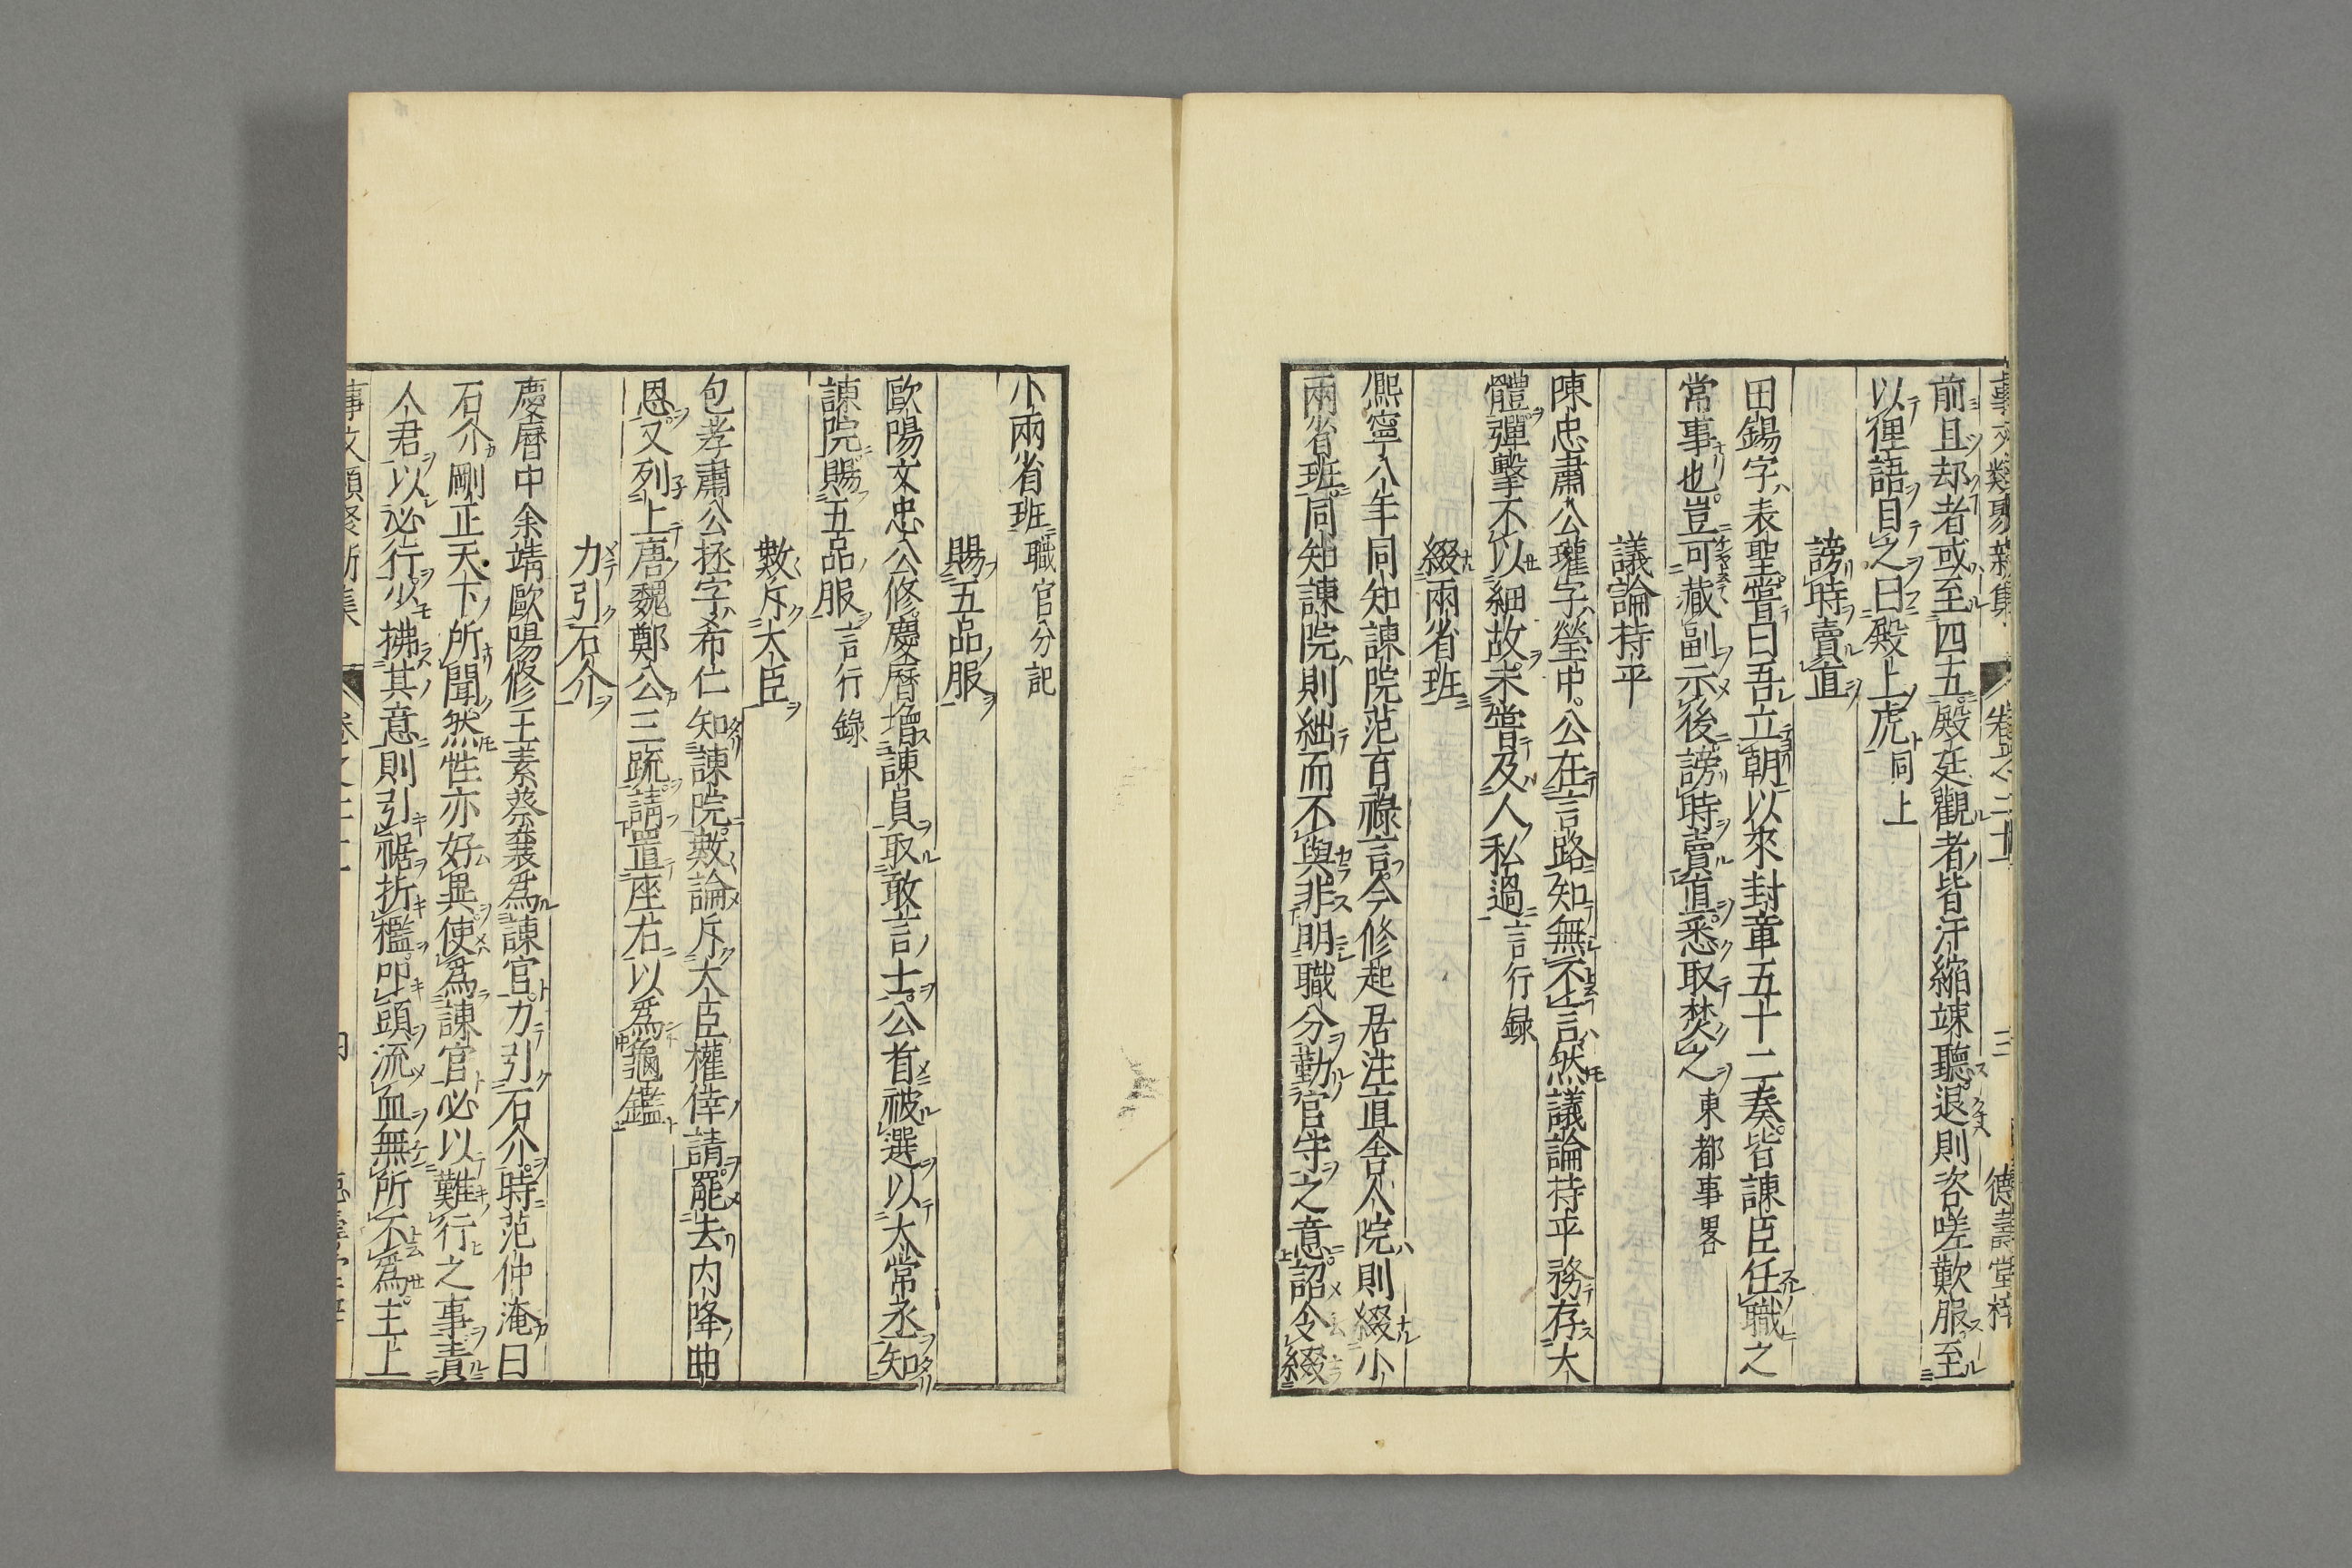 事文類聚新集 卷之二十 三 德壽堂梓
前且却者或至四五殿廷觀者皆汗縮竦聽退則咨嗟歎服至
以俚語目之曰殿上虎同上
謗時賣直
田錫字表聖嘗曰吾立朝以來封章五十二奏皆諫臣任職之
常事也豈可藏副示後謗時賣直悉取焚之東都事畧
議論持平
陳忠肅公瓘字瑩中公在言路知無不言然議論持平務存大
體彈擊不以細故未嘗及人私過言行録
綴兩省班
熈寧八年同知諫院范百祿言今修起居注直舍人院則綴小
兩省班同知諫院則絀而不與非明職分勤官守之意詔令綴
小兩省班職官分記
賜五品服
歐陽文忠公修慶曆增諫員取敢言士公首被選以太常丞知
諫院賜五品服言行錄
數斥大臣
包孝肅公拯字希仁知諫院數論斥大臣權倖請罷去内降曲
恩又列上唐魏鄭公三疏請置座右以爲龜鑑
力引石介
慶曆中余靖歐陽修王素蔡襄爲諫官力引石介時范仲淹曰
石介剛正天下所聞然性亦好異使爲諫官必以難行之事責
人君以必行少拂其意則引裾折檻叩頭流血無所不爲主上